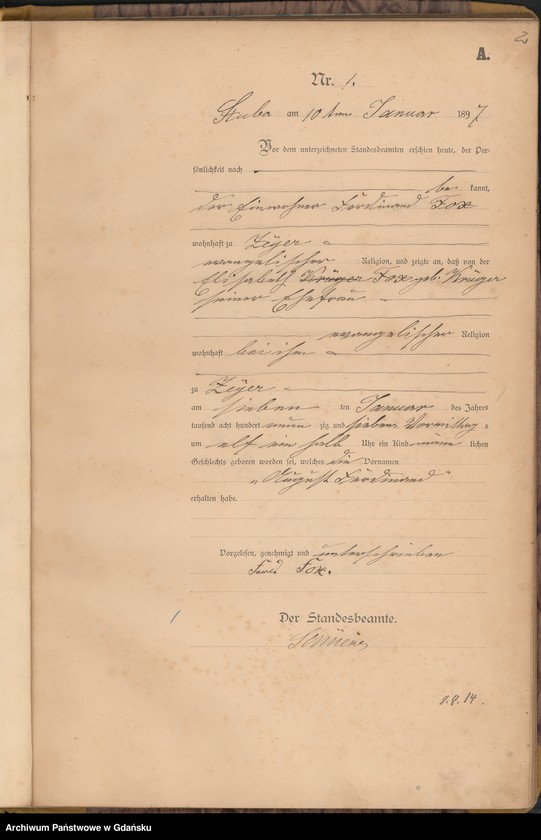 2
A.
Nr. 1.
Stuba am 10ten Januar 1897
Vor dem unterzeichneten Standesbeamten erschien heute, der Per-
sönlichkeit nach
be kannt,
der Einwohner Ferdinand Fox
wohnhaft zu Zeyer
evangelischer Religion, und zeigte an, daß von der
Elisabeth Krüger Fox geb. Krüger
seiner Ehefrau
evangelischer Religion
wohnhaft bei ihm
zu Zeyer
am sieben ten Januar des Jahres
tausend acht hundert neun zig und sieben Vormittags
um elf ein halb Uhr ein Kind männ lichen
Geschlechts geboren worden sei, welches die Vornamen
„August Ferdinand“
erhalten habe.
Vorgelesen, genehmigt und unterschrieben
Ferd Fox.
Der Standesbeamte.
8.8.14.
Archiwum Państwowe w Gdańsku